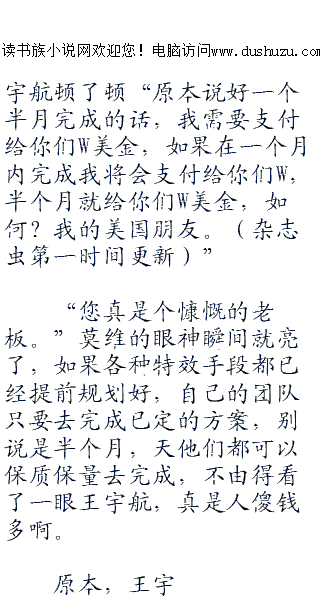 读书族小说网欢迎您！电脑访问www.dushuzu.com
宇航顿了顿“原本说好一个
半月完成的话，我需要支付
给你们W美金，如果在一个月
内完成我将会支付给你们W，
半个月就给你们W美金，如
何？我的美国朋友。（杂志
虫第一时间更新）”
“您真是个慷慨的老
板。”莫维的眼神瞬间就亮
了，如果各种特效手段都已
经提前规划好，自己的团队
只要去完成已定的方案，别
说是半个月，天他们都可以
保质保量去完成，不由得看
了一眼王宇航，真是人傻钱
多啊。
原本，王宇